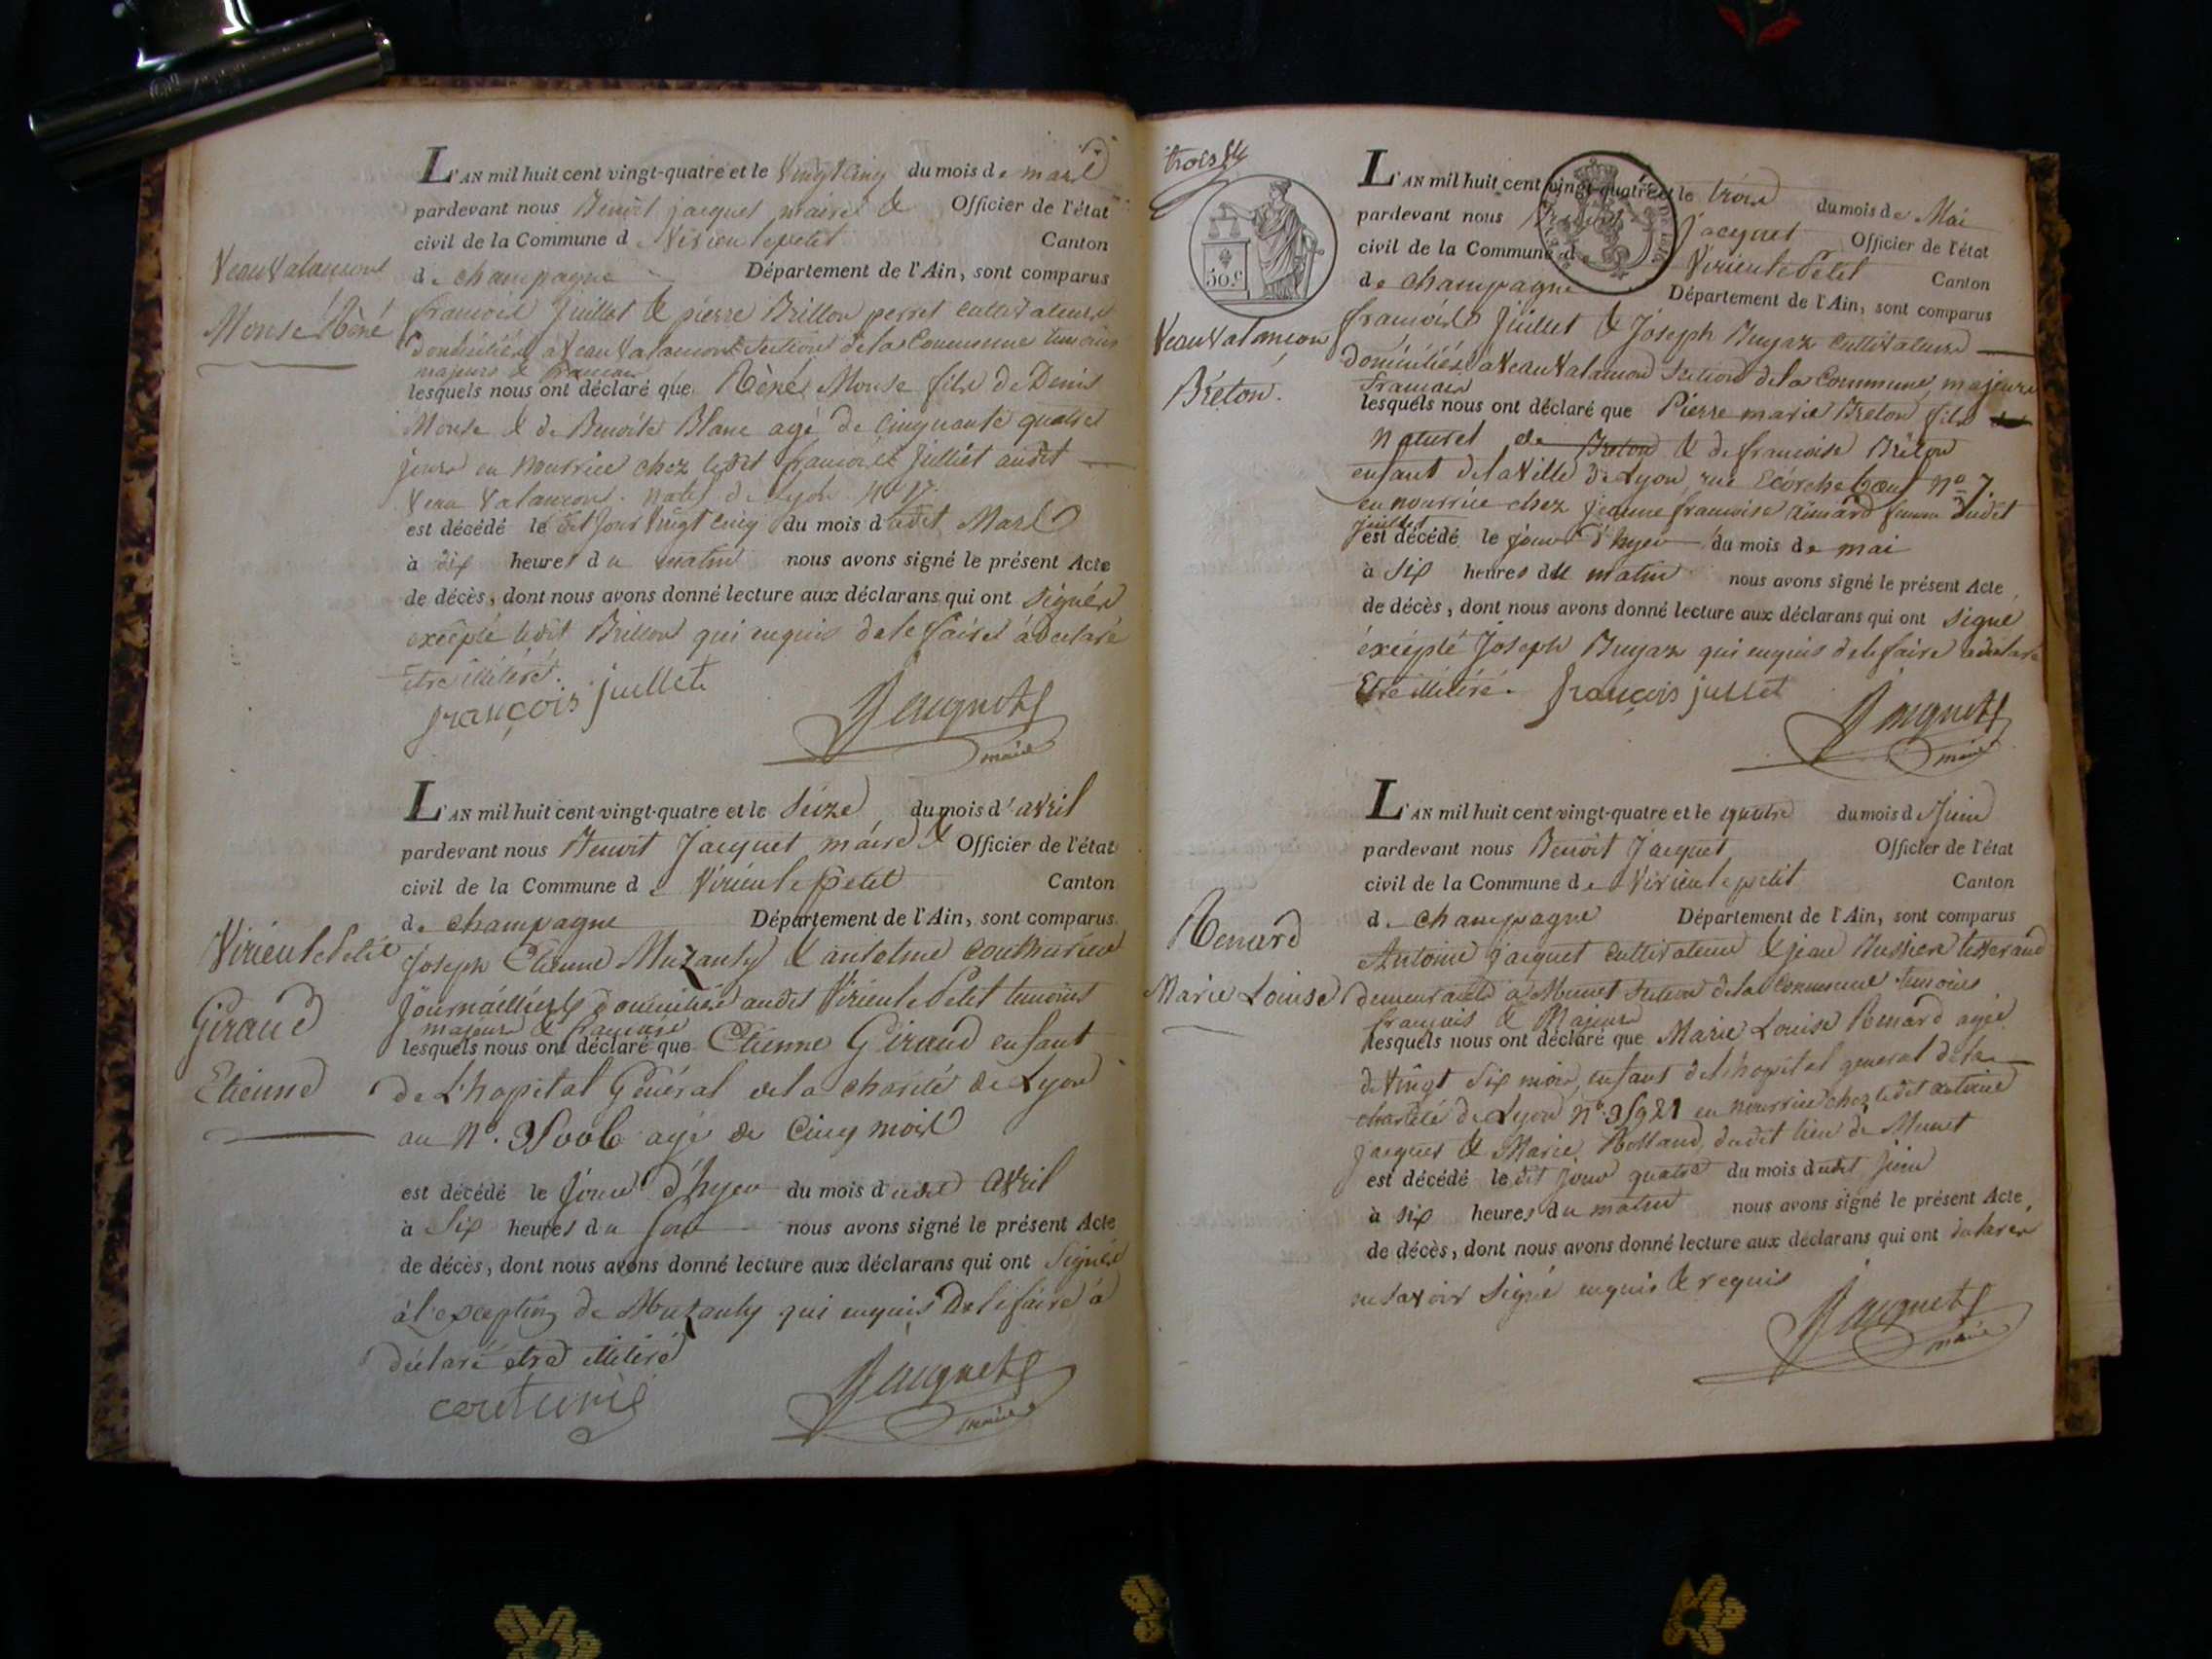 L'AN mil huit cent vingt-quatre et le vingt cinq du mois de mars
pardevant nous Benoit jacquet maire & Officier de l'état
civil de la Commune de Virieu le petit Canton
de champagne Département de l'Ain, sont comparus
Veauvalancont
Monse Réné
francois Juillet & pierre Brillon perret cultivateurs
domiciliés a Veauvalamont section de la Commune temoins
majeurs & francais
lesquels nous ont déclaré que Réné Monse fils de Denis
Monse & de Benoite Blanc agé de cinquante quatre
jours en nourrice chez ledit francois juilliet audit
natif de Lyon No 17.
est décédé le dit jour vingt cinq du mois dudit Mars
à dix heures du matin nous avons signé le présent Acte
de décès, dont nous avons donné lecture aux déclarans qui ont signés
excépté ledit Brillon qui enquis de le faire a déclaré
etre illiteré.
françois juillet
Jacquet
maire
L'AN mil huit cent vingt-quatre et le seize du mois d'avril
pardevant nous Benoit Jacquet maire & Officier de l'état
civil de la Commune de Virieu le petit Canton
de champagne Département de l'Ain, sont comparus
Virieu le Petit
Giraud
Etienne
Joseph Etienne Muzanty & antelme couthurier
Journailliers domiciliés audit Virieu le Petit temoins
majeurs & francais
lesquels nous ont déclaré que Etienne Giraud enfant
de L'hopital Général de la charité de Lyon
au No. agé de cinq mois
est décédé le jour d'hyer du mois dudit avril
à Six heures du soir nous avons signé le présent Acte
de décès, dont nous avons donné lecture aux déclarans qui ont signés
à l'exception de Muzanty qui enquis de le faire a
déclaré etre illiteré
couturié
Jacquet
maire
trois
50 c
L'AN mil huit cent vingt-quatre et le trois du mois de Mai
pardevant nous Benoit Jacquet Officier de l'état
civil de la Commune de Virieu le Petit Canton
de champagne Département de l'Ain, sont comparus
Veauvalancon
Bréton.
francois Juillet & Joseph Bugaz cultivateurs
domiciliés a Veauvalamond section de la Commune majeurs
francais
lesquels nous ont déclaré que Pierre marie Breton fils
naturel de Breton & de francoise Bréton
enfant de la Ville de Lyon rue Ecorche boeuf No 7.
en nourrice chez jeanne francoise aimard femme dudit
juillet
est décédé le jour d'hyer du mois de mai
à Six heures du matin nous avons signé le présent Acte
de décès, dont nous avons donné lecture aux déclarans qui ont signé
éxcépté Joseph Bugaz qui enquis de le faire a déclaré
Etre illitéré. françois juillet
Jacquet
maire
L'AN mil huit cent vingt-quatre et le quatre du mois de Juin
pardevant nous Benoit Jacquet Officier de l'état
civil de la Commune de Virieu le petit Canton
de champagne Département de l'Ain, sont comparus
Renard
Marie Louise
Antoine jacquet cultivateur & jean tisserand
demeurants a Munet section de la Commune temoins
francais & Majeurs
lesquels nous ont déclaré que Marie Louise Renard agée
de vingt Six mois, enfant de l'hopital general de la
charité de Lyon No. en nourrice chez ledit antoine
jacquet & Marie Rolland, dudit lieu de Munet
est décédé le dit jour quatre du mois dudit juin
à six heures du matin nous avons signé le présent Acte
de décès, dont nous avons donné lecture aux déclarans qui ont declarés
ne savoir signé enquis & requis
Jacquet
maire